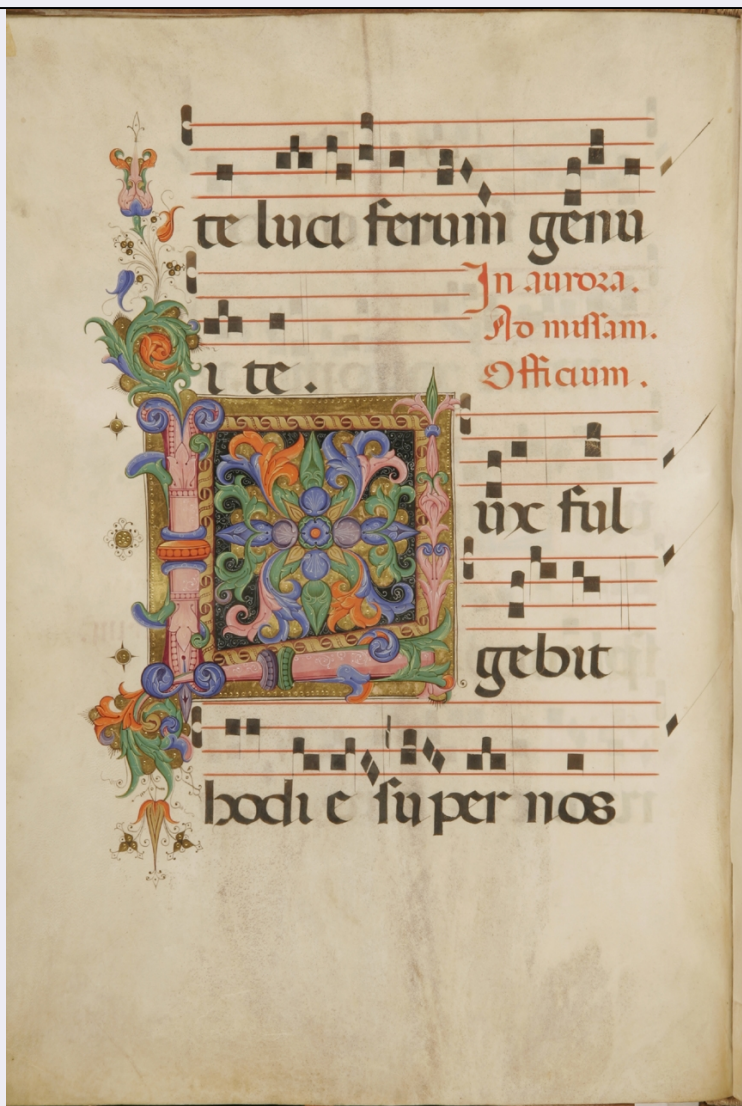 te luci ferum genu
i te.
In aurora.
Ad missam.
Officium.
Lux ful
gebit
hodi e super nos